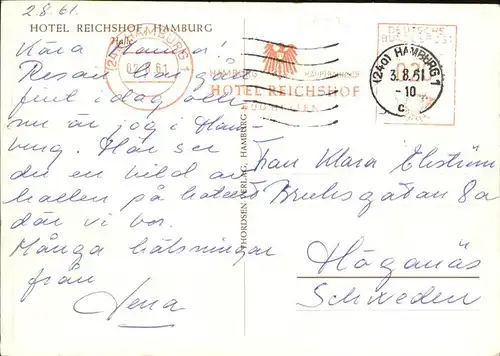 2.8.61.
HOTEL REICHSHOF, HAMBURG
Halle
Kära Mamma!
Resan har gått
fint i dag och
nu är jag i Ham-
burg. Här ser
du en bild av
hallen på hotellet
där vi bor.
Många hälsningar
från
Jena
THORDSEN VERLAG, HAMBURG
(24a) HAMBURG 1
02.8.61
HAMBURG HAUPTBAHNHOF
HOTEL REICHSHOF
DEUTSCHE
BUNDESPOST
(24a) HAMBURG 1
3.8.61
-10
c
Frau Klara Ekström
Bruksgatan 8a
Höganäs
Schweden